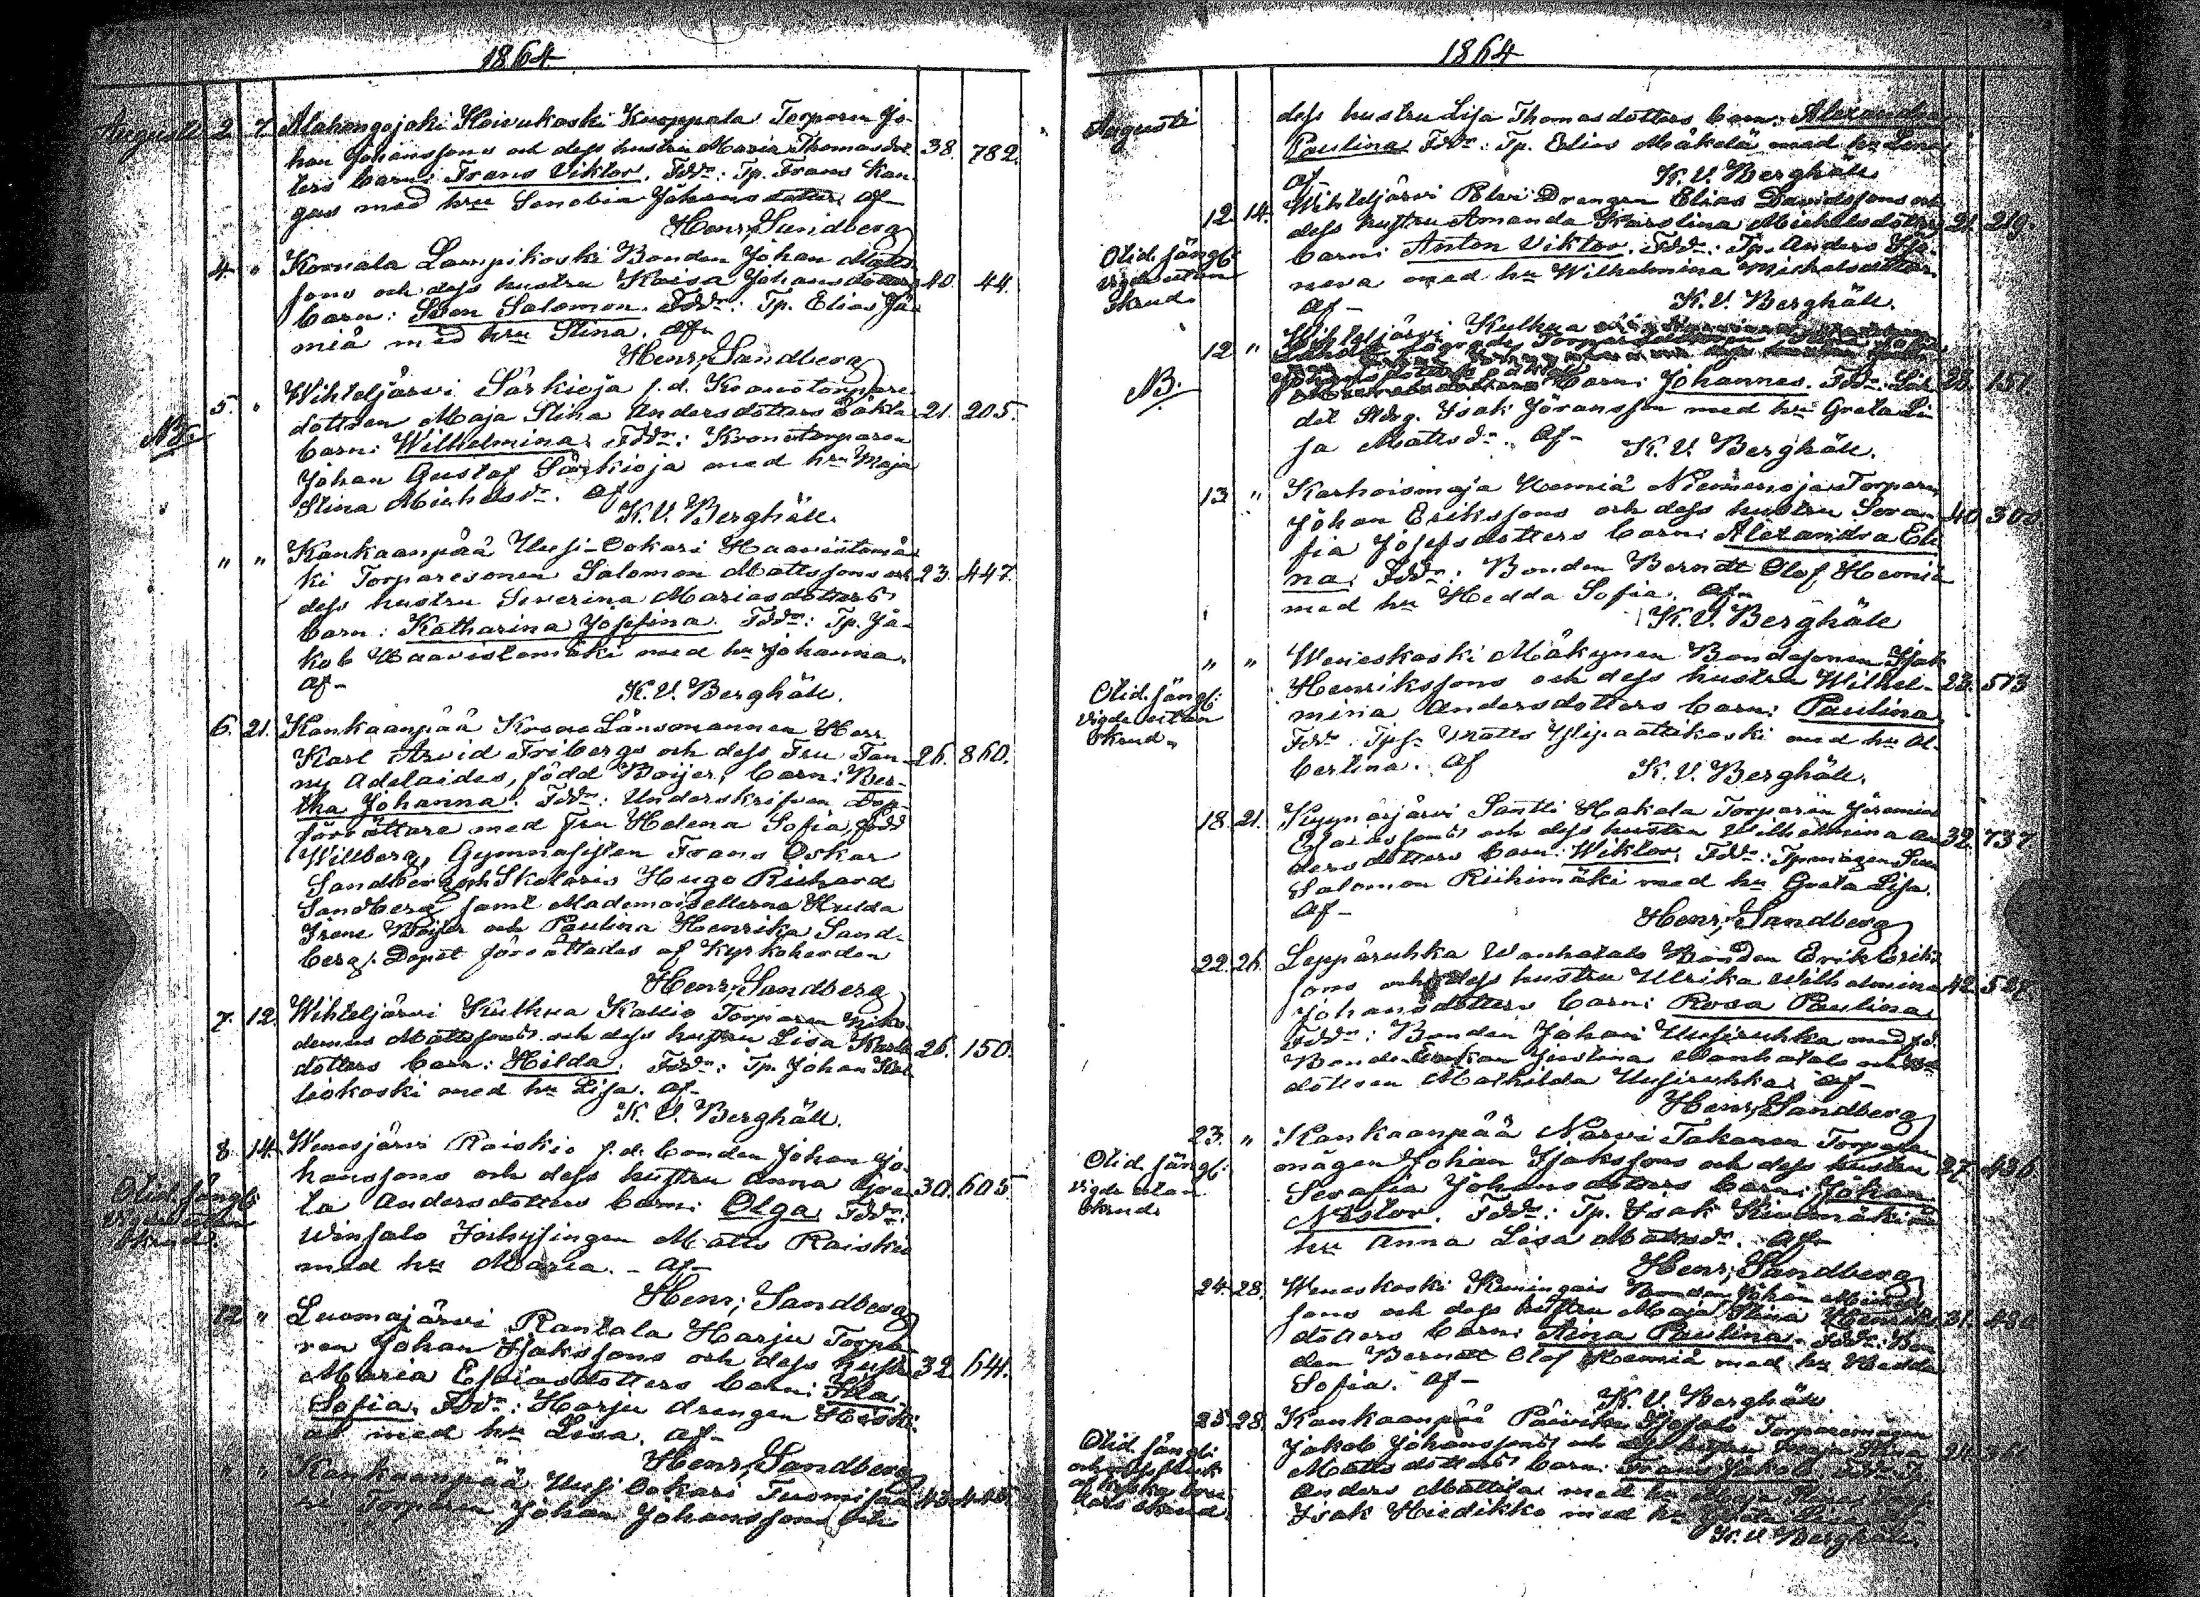 1864
Augusti 2. 7. Alahongojoki Hoivukoski Kuoppala Torparen Jo-
han Johanssons och dess hustru Maria Thomasdot- 38. 782.
ters barn: Frans Viktor. Fddr: Tp. Frans Kan-
gas med hru Senobia Johansdotter. af
Henr; Sandberg
4. " Korvala Lampikoski Bonden Johan Matts-
sons och dess hustru Kaisa Johansdotters 40. 44.
barn: Sven Salomon. Fddr: Tp. Elias Jä-
miä med hru Stina. af
Henr; Sandberg
5. " Wihteljärvi Särkioja f.d. Kronotorpare-
dottren Maja Stina Andersdotters oäkta 21. 205.
NB.
barn: Wilhelmina. Fddr: Kronotorparen
Johan Gustaf Särkioja med hru Maja
Stina Michelsdr. af
K. V. Berghäll.
" " Kankaanpää Uusi-Ookari Haavistomä-
ki Torparesonen Salomon Mattssons och 23. 447.
dess hustru Severina Mariasdotters
barn: Katharina Josefina. Fddr: Tp. Ja-
kob Haavistomäki med hu Johanna.
af
K. V. Berghäll.
6. 21. Kankaanpää Krono Länsmannen Herr
Karl Arvid Fribergs och dess Fru Fan- 26. 860.
ny Adelaides, född Boijer, barn: Ber-
tha Johanna. Fddr: Underskrifven Dop-
förrättare med Fru Helena Sofia, född
Willberg, Gymnasisten Frans Oskar
Sandberg och Skolaris Hugo Richard
Sandberg samt Mademoisellerna Hulda
Irene Boijer och Paulina Henrika Sand-
berg. Dopet förrättades af Kyrkoherden
Henr; Sandberg
7. 12. Wihteljärvi Kulhua Kallio Torparen Niko-
demus Mattssons och dess hustru Lisa Karls- 26. 150.
dotters barn: Hilda. Fddr: Tp. Johan Kal-
liokoski med hu Lisa. af
K. V. Berghäll.
8. 14. Wenesjärvi Raiskio f.d. bonden Johan Jo-
hanssons och dess hustru Anna Gre- 30. 605.
Olid. sängb:
vigdes utan
skrud.
ta Andersdotters barn: Olga. Fddr:
Winsalo Inhysingen Matts Raiskio
med hu Maria. - af
Henr; Sandberg
12. " Luomajärvi Rantala Harju Torpa-
ren Johan Isakssons och dess hustru 32. 641.
Maria Esaiasdotters barn: Ida
Sofia. Fddr: Harju drengen Heiki-
as med hu Lisa. af
Henr; Sandberg
" " Kankaanpää Uusi Ookari Tuomisaa-
ri Torparen Johan Johanssons och 43.
1864
Augusti
dess hustru Lisa Thomasdotters barn: Alexandra
Paulina. Fddr: Tp. Elias Mäkelä med hu Lena.
af K. V. Berghäll.
12. 14. Wihteljärvi Elvi Drengen Elias Davidssons och
dess hustru Amanda Karolina Michelsdotters 21. 219.
Olid. sängb:
vigdes utan
skrud.
barn: Anton Viktor. Fddr: Tp. Anders
neva med hu Wilhelmina Michelsdotter.
af K. V. Berghäll.
12. " Wihteljärvi Kulhua
NB.
barn: Johannes. Fddr: 23. 151.
del Ildrg. Isak Jöransson med hu Greta Li-
sa Mattsdr. af K. V. Berghäll.
13. " Karhoismaja Hemiä Niemenoja Torparen
Johan Erikssons och dess hustru Sera- 40. 300.
fia Josefsdotters barn: Alexandra Eli-
na. Fddr: Bonden Berndt Olof Hemiä
med hu Hedda Sofia. af
K. V. Berghäll
" " Weneskoski Mäkynen Bondesonen Isak
Henrikssons och dess hustru Wilhel- 23. 513
Olid. sängb:
vigdes utan
skrud.
mina Andersdotters barn: Paulina.
Fddr: Tps. Matts Ylipaattikoski med hu Al-
bertina. af K. V. Berghäll.
18. 21. Kyynärjärvi Santti Hakala Torparen Jeremias
Esaiassons och dess hustru Wilhelmina An- 32. 737
dersdotters barn: Wiktor. Fddr: Tpmågen Sven
Salomon Riihimäki med hu Greta Lisa.
af Henr; Sandberg
22. 26. Leppäruhka Wanhatalo Bonden Erik Eriks-
sons och dess hustru Ulrika Wilhelmina 42.
Johansdotters barn: Rosa Paulina.
Fddr: Bonden Johan Uusiruhka med fd.
Bonde Enkan Justina Wanhatalo och Bd-
dottren Mathilda Uusiruhka. af
Henr; Sandberg
23. " Kankaanpää Narvi Takanen Torpare-
mågen Johan Isakssons och dess hustru 27. 436.
Olid. sängb:
vigdes utan
skrud.
Serafia Johansdotters barn: Johan
Nestor. Fddr: Tp. Isak Kivimäki med
hu Anna Lisa Mattsdr. af
Henr; Sandberg
24. 28. Weneskoski Kuningais Bonden Johan Michels-
sons och dess hustru Maja Stina Henriks- 31. 480
dotters barn: Aina Paulina. Fddr: Bon-
den Berndt Olof Hemiä med hu Hedda
Sofia. af
K. V. Berghäll.
25. 28. Kankaanpää Päivike Isosalo Torparemågen
Jakob Johanssons och dess hustru Maja Stina
Olid. sängb:
Mattsdotters barn: Frans Jakob. Fddr: Tp.
Anders Mattila med hu Maja Stina
Isak Hiedikko med hu Greta Lisa. af
K. V. Berghäll.